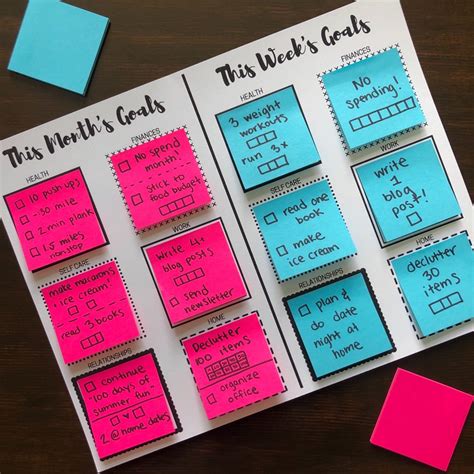 This Month's Goals
HEALTH
10 push-ups
-50 mile
2 min plank
1.5 miles
nonstop
FINANCES
No spend
month!
stick to
food budget
SELF CARE
make macarons
ice cream
read 3 books
WORK
Write 4+
blog posts
send
newsletter
RELATIONSHIPS
continue
100 days of
summer fun
2 @home dates
HOME
Declutter
100 items
organize
office
This Week's Goals
HEALTH
3 weight
workouts
run 3x
FINANCES
No
spending!
SELF CARE
read one
book
make
ice cream
WORK
write
1
blog
post!
RELATIONSHIPS
plan &
do date
night at
home
HOME
declutter
30
items